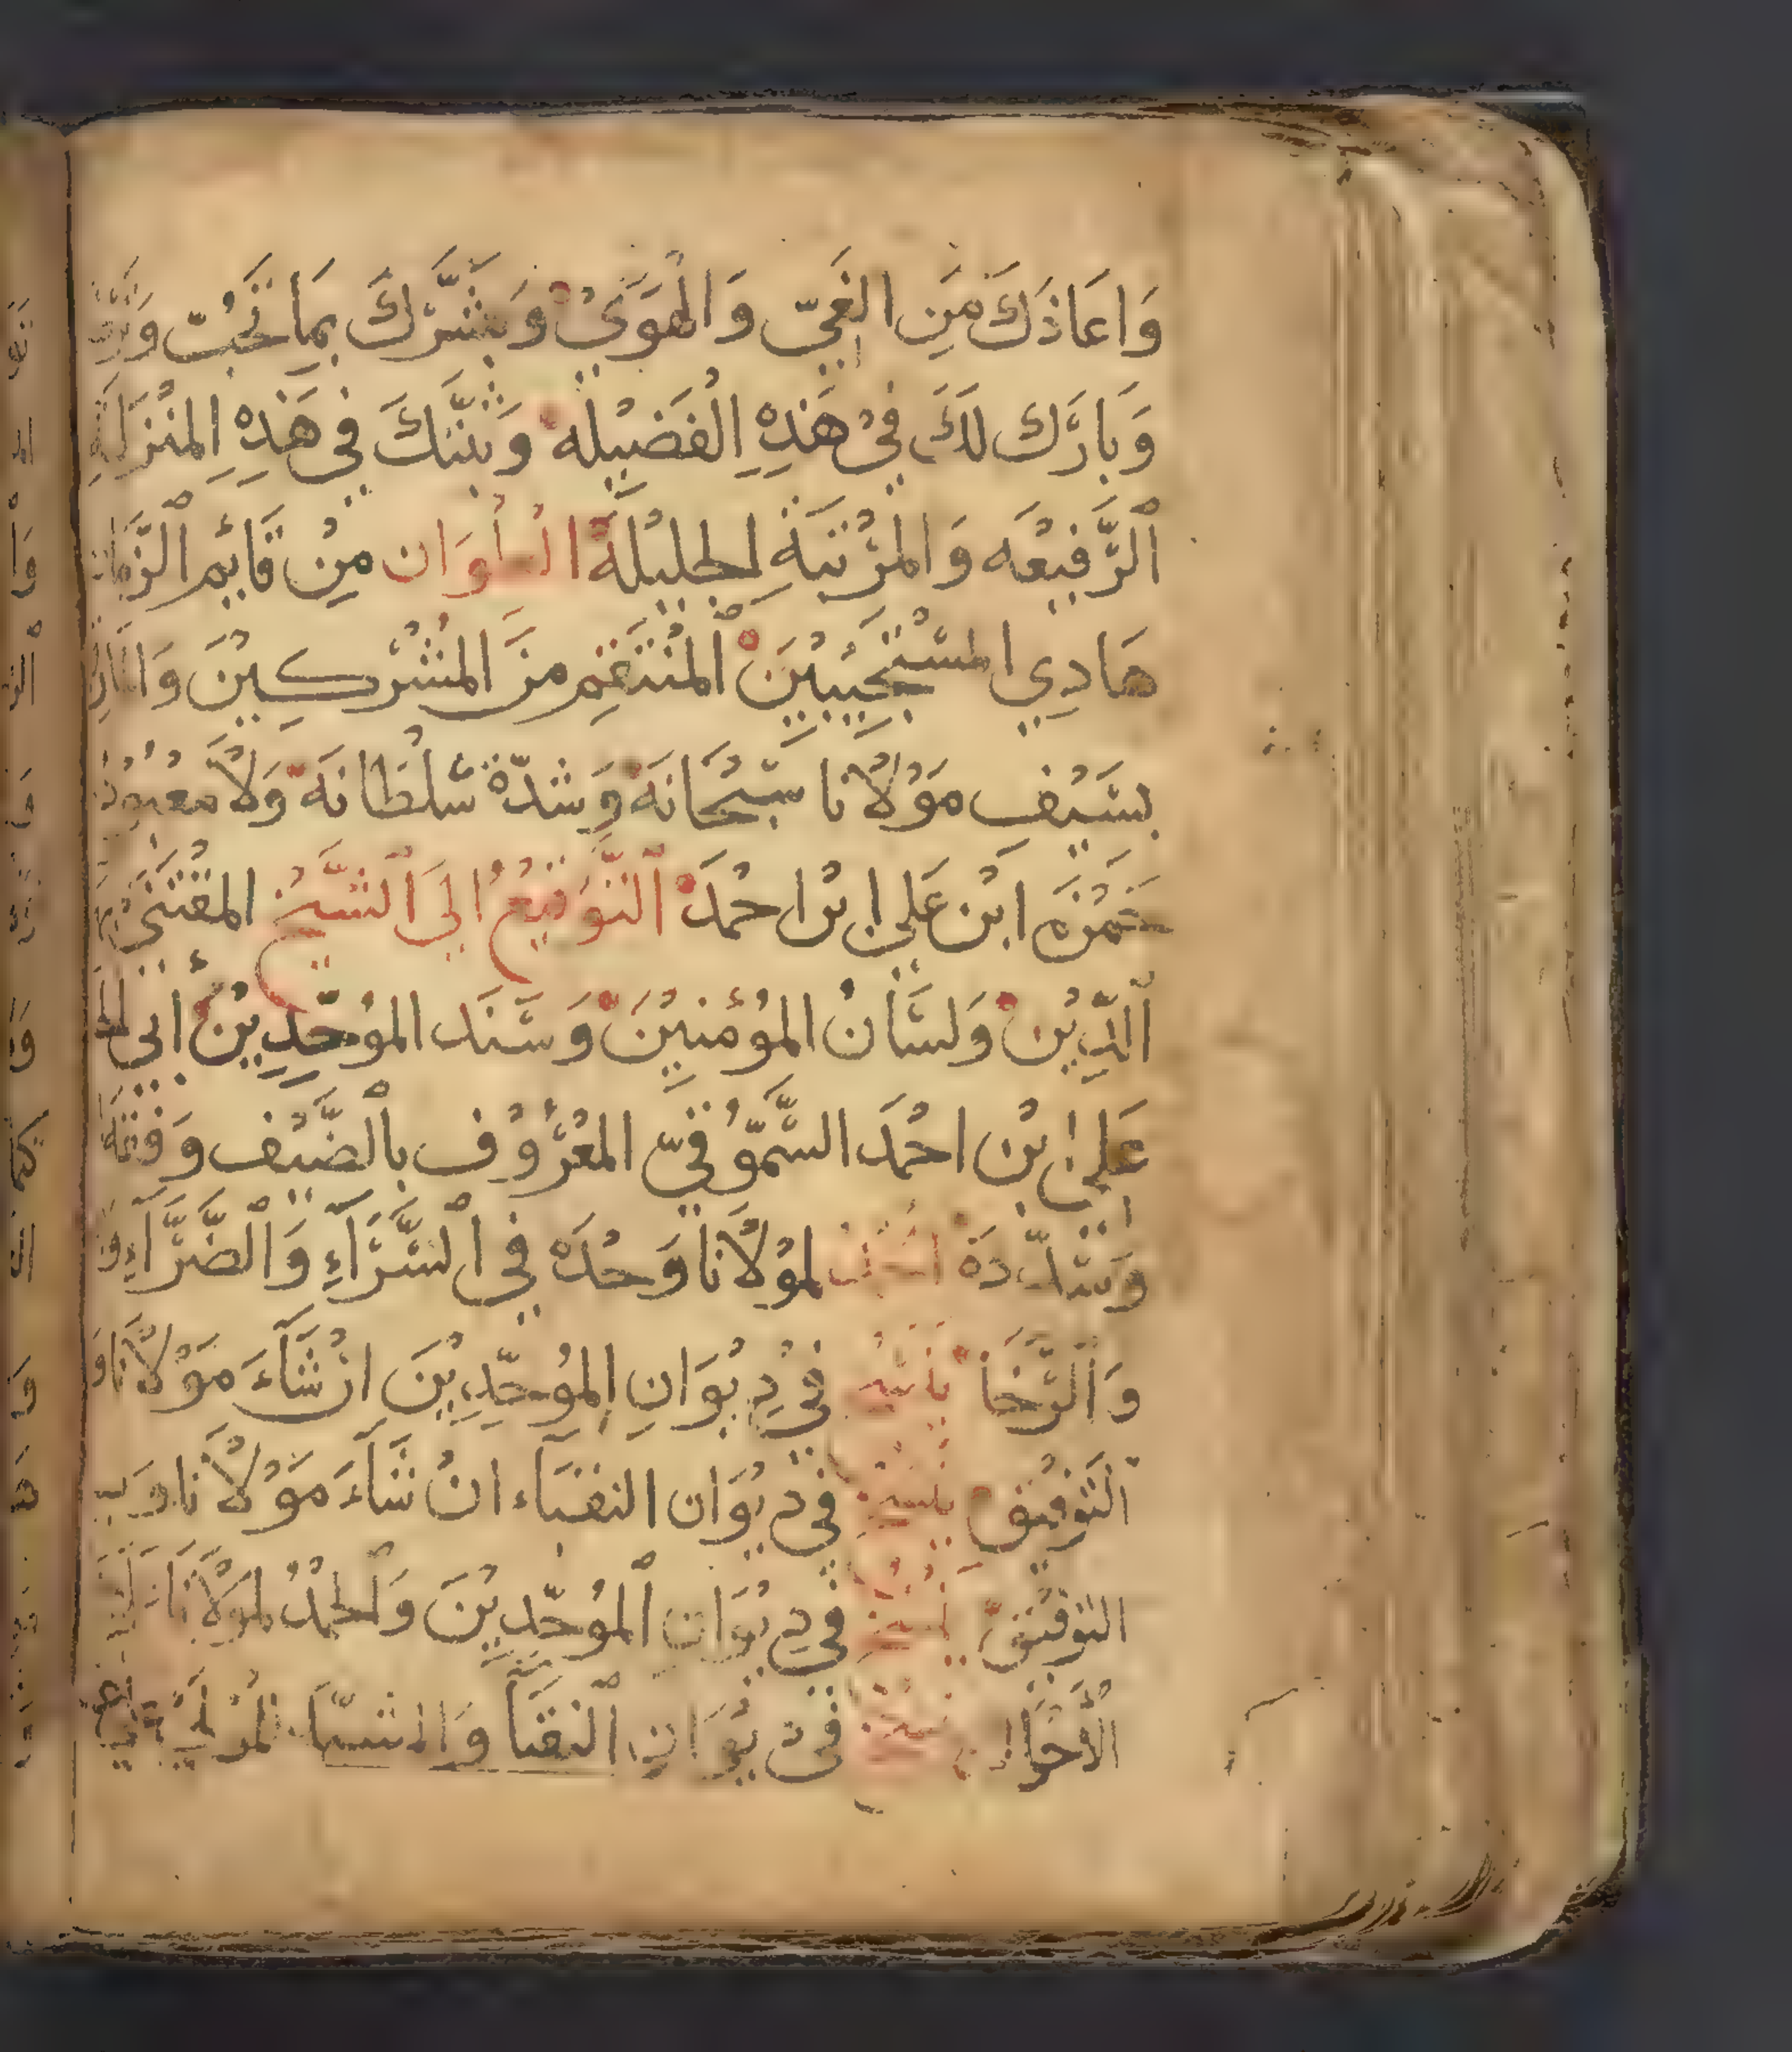 وَاعَاذَكَ مَنِ الغَيّ وَالْهَوَىْ وَبَشَّرَكَ بِمَا تَحُبّ
وَبَارَك لَكَ فِيْ هَذِهِ الْفَضِيْلَه وَثَبَّتَكَ فِي هَذِهِ الْمَنْزَلَةِ
الرَّفِيْعَه وَالْمَرْتَبَةِ الجَلِيْلَةْ مِنْ قَايِم الزَّمَان
هَادِي المسْتَجِيْبِيْنَ الْمُنْتَقِم مِنَ الْمُشْرِكِيْنَ
بِسَيْفِ مَوْلَانَا سُبْحَانَهْ وَشدّة سُلْطَانَهْ وَلَا مَعْبُوْدُ
حَمْزَه ابْن عَلِي ابْن احْمَدْ التَّوْقِيْعُ الَى الشَّيْخ المُقْتَنَى
الدِّيْنْ وَلسَانْ المُؤْمِنِيْنَ وَسَنَد المُوَحِّدِيْنَ أبي
عَلِيْ بْن احْمَدَ السَّمُّوْقيّ المَعْرُوْف بِالضَّيْف وَفقَهْ
وَسَدّدَهْ لمَوْلَانَا وَحْدَهْ فِي السَّرَّآءِ وَالضَّرَّآءِ
وَالرَّخَا فيْ دِيْوَانِ المُوَحِّدِيْنَ انْ شَآءَ مَوْلَانَا
التَوفِيْق في ديْوَان النقبَاء انْ شَآءَ مَوْلَانَا وَبه
التَوفيْق في دِيْوَان المُوَحِّدِيْنَ وَلْحَمْدُ لمَوْلَانَا
في ديْوَان النقبَا